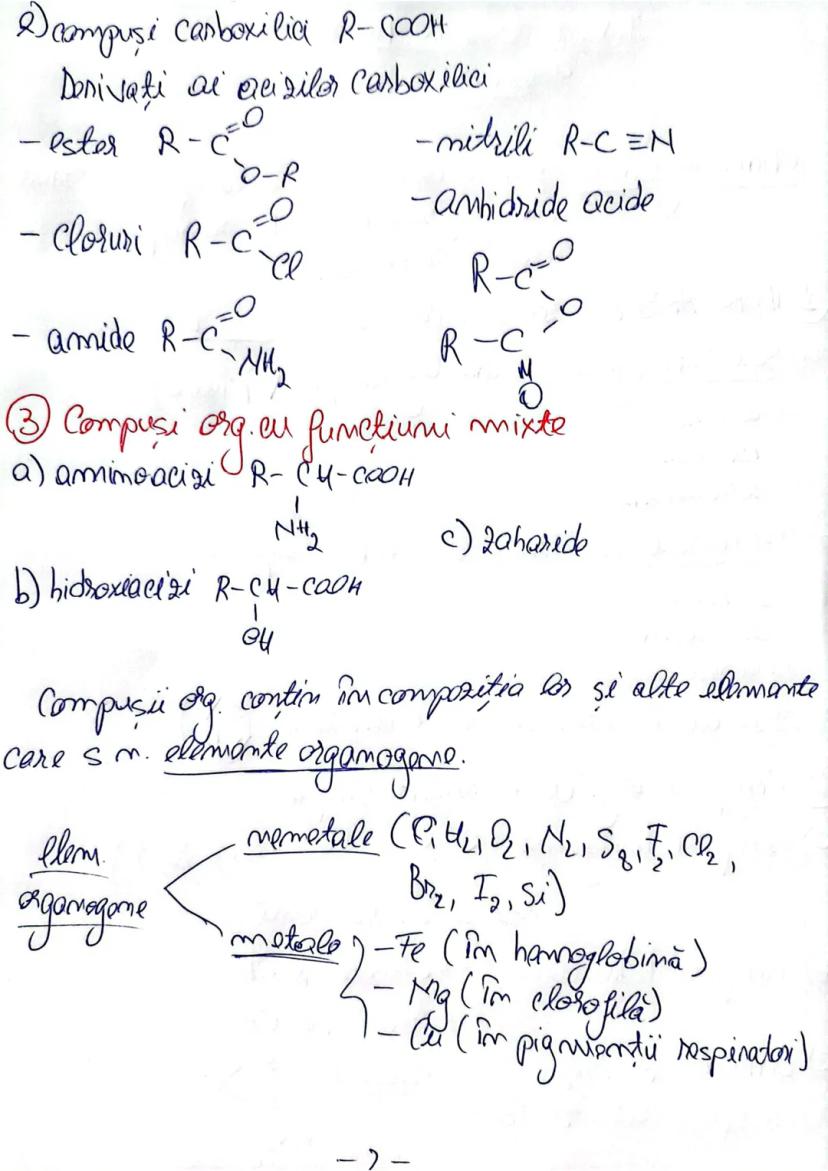 e) compuși carboxilici R-COOH
Derivați ai acizilor carboxilici
- ester R-C=O
O-R
- cloruri R-C=O
Cl
- amide R-C=O
NH2
- nitrili R-C≡N
- anhidride acide
R-C=O
O
R-C
O
③ Compuși org. cu funcțiuni mixte
a) aminoacizi R-CH-COOH
NH2
b) hidroxiacizi R-CH-COOH
OH
c) zaharide
Compușii org. conțin în compoziția lor și alte elemente
care s n. elemente organogene.
elem.
organogene
nemetale (C, H2, O2, N2, S8, F2, Cl2,
Br2, I2, Si)
metale - Fe (în hemoglobină)
- Mg (în clorofilă)
- Cu (în pigmenții respiratori)
- 2 -